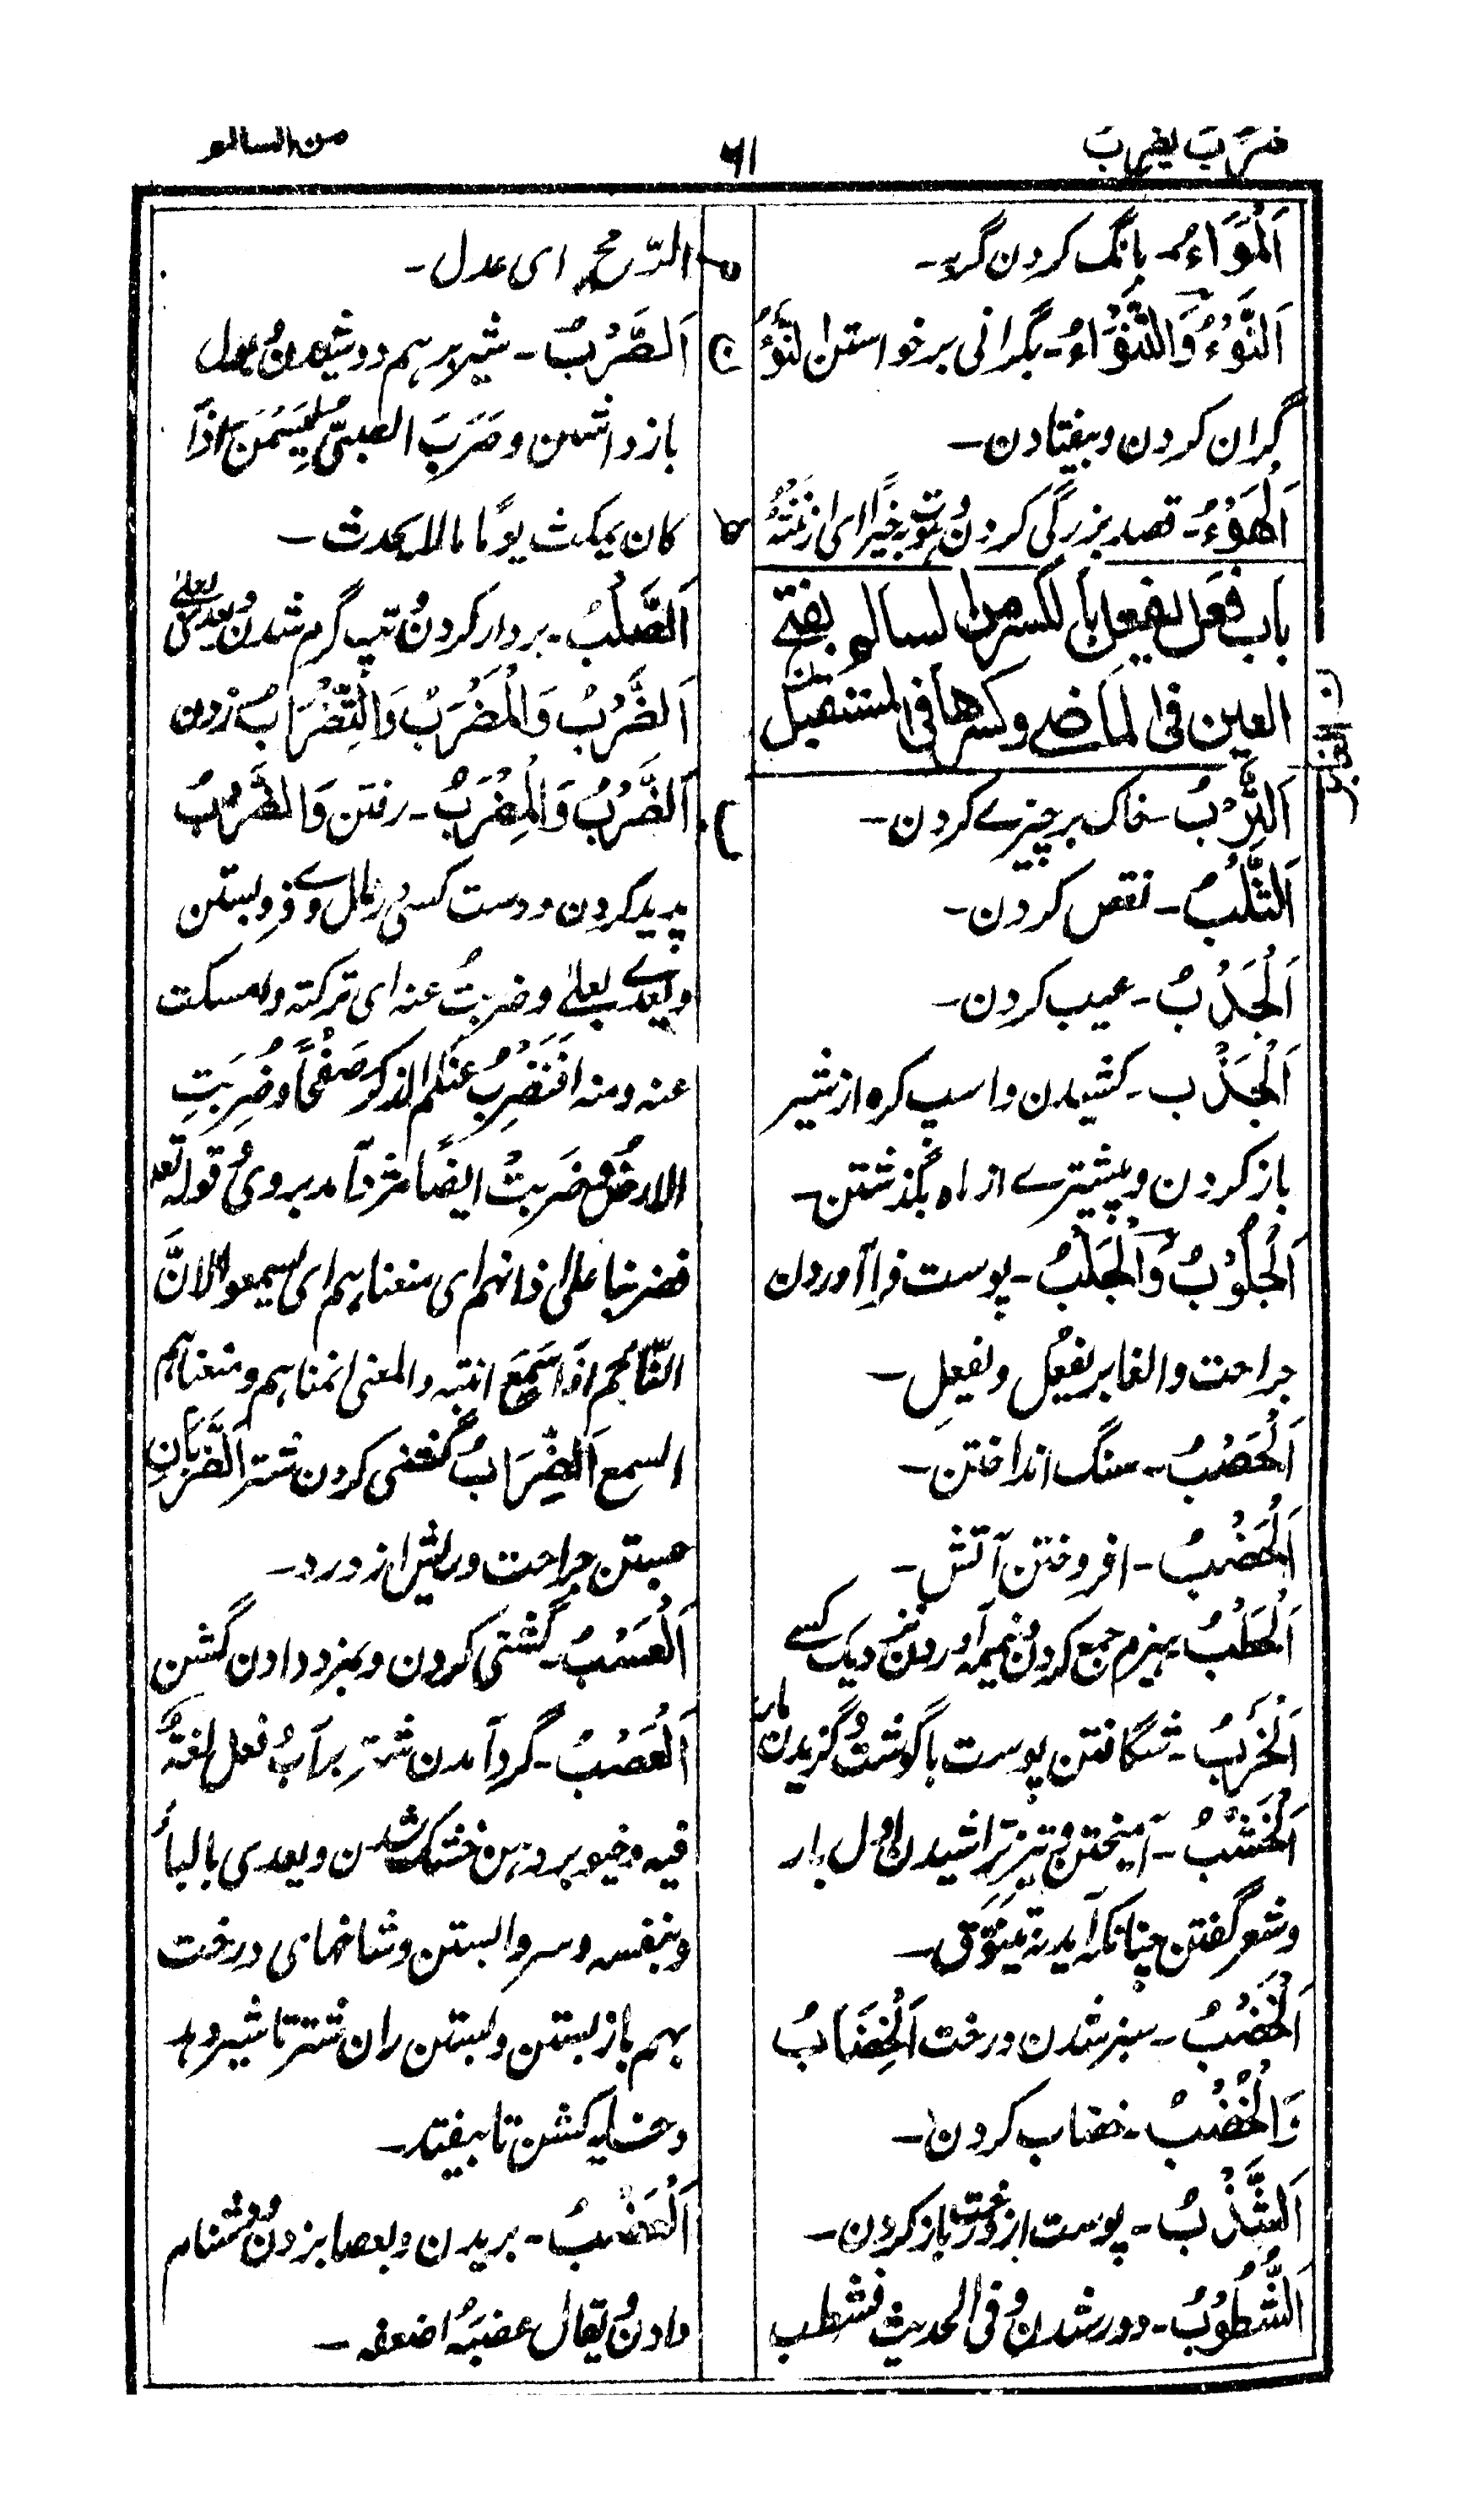 ضرب یضرب
۶۱
من السالم
اَلْمُوَاءُ۔ بانگ کردن گربہ۔
اَلنَّوْءُ وَالتَّنْوَاءُ۔ بگرانی برخواستن
گران کردن و بیفتادن۔
اَلْهَوْءُ۔ قصد بزرگی کردن
باب فعَل یفعِل بالکسر من السالم بفتح
العین فی الماضی وکسرها فی المستقبل
اَلتَّرْبُ۔ خاک برچیزے کردن۔
اَلثَّلْبُ۔ نقص کردن۔
اَلْجَدْبُ۔ عیب کردن۔
اَلْجَذْب۔ کشیدن و اسپ کرہ از شیر
باز کردن و پیشترے از ماہ بگذشتن۔
اَلْجُلُوْبُ وَالْجَلْبُ۔ پوست فراآوردن
جراحت والغابر یفعُل ویفعِل۔
اَلْحَصْبُ۔ سنگ انداختن۔
اَلْحَضْبُ۔ افروختن آتش۔
اَلْحَطْبُ۔ ہیزم جمع کردن و ہیمہ آوردن نزدیک کسے
اَلْخَرْبُ۔ شگافتن پوست باگوشت و گزیدن مار
اَلْخَشْبُ۔ آمیختن و تیر تراشیدن اول بار
و شعر گفتن چنانکہ آید نہ بتنوق۔
اَلْخَضْبُ۔ سبز شدن درخت اَلْخِضَابُ
وَالْخَضْبُ۔ خضاب کردن۔
اَلشَّذْبُ۔ پوست از درخت باز کردن۔
اَلشُّطُوْبُ۔ دور شدن و فی الحدیث فشطب
الرّمح ای عدل۔
اَلصَّرْبُ۔ شیر برہم دوشیدن و بول
باز داشتن و صَرَبَ الصبیّ لِیَسْمَنَ اذا
کان یمکث یومًا لا یحدث۔
اَلصَّلْبُ۔ بردار کردن و تپ گرم شدن و یعدی بعلی
اَلضَّرْبُ وَالْمَضْرَبُ وَالتَّضْرَابُ زدن
اَلضَّرْبُ وَالْمَضْرِبُ۔ رفتن وَالضَّرْبُ
پدید کردن و دست کسی از مال وے فروبستن
ویعدے بعلی وضربتُ عنہ ای ترکتہ وامسکت
عنہ ومنہ اَفَنَضْرِبُ عنکم الذکر صَفْحًا وضُرِبَتِ
الارض و ضَرِبتْ ایضًا قولہ تعہ
فضربنا علی اذانہم ای منعناہم ای یسمعوا لانّ
النّائم اذا سَمِعَ انتبہ والمعنی انمناہم ومنعناہم
السمع اَلضِّرَابُ گشنی کردن شتر اَلضَّرَبَانِ
جستن جراحت و ریش از درد۔
اَلْعَسْبُ۔ گشنی کردن و بمزد دادن گشن
اَلْعَصْبُ۔ گرد آمدن شتر برآب و فعل لغۃ
فیہ و خیو بر دہن خشک شدن ویعدی بالباء
وبنفسہ و سر وابستن و شاخہای درخت
بہم باز بستن و بستن ران شتر تا شیر دہد
وخایہ کشن تا بیفتد۔
اَلْعَضْبُ۔ بریدن و بعصا بزدن و دشنام
دادن و یقال عضبہُ اضعفہ۔